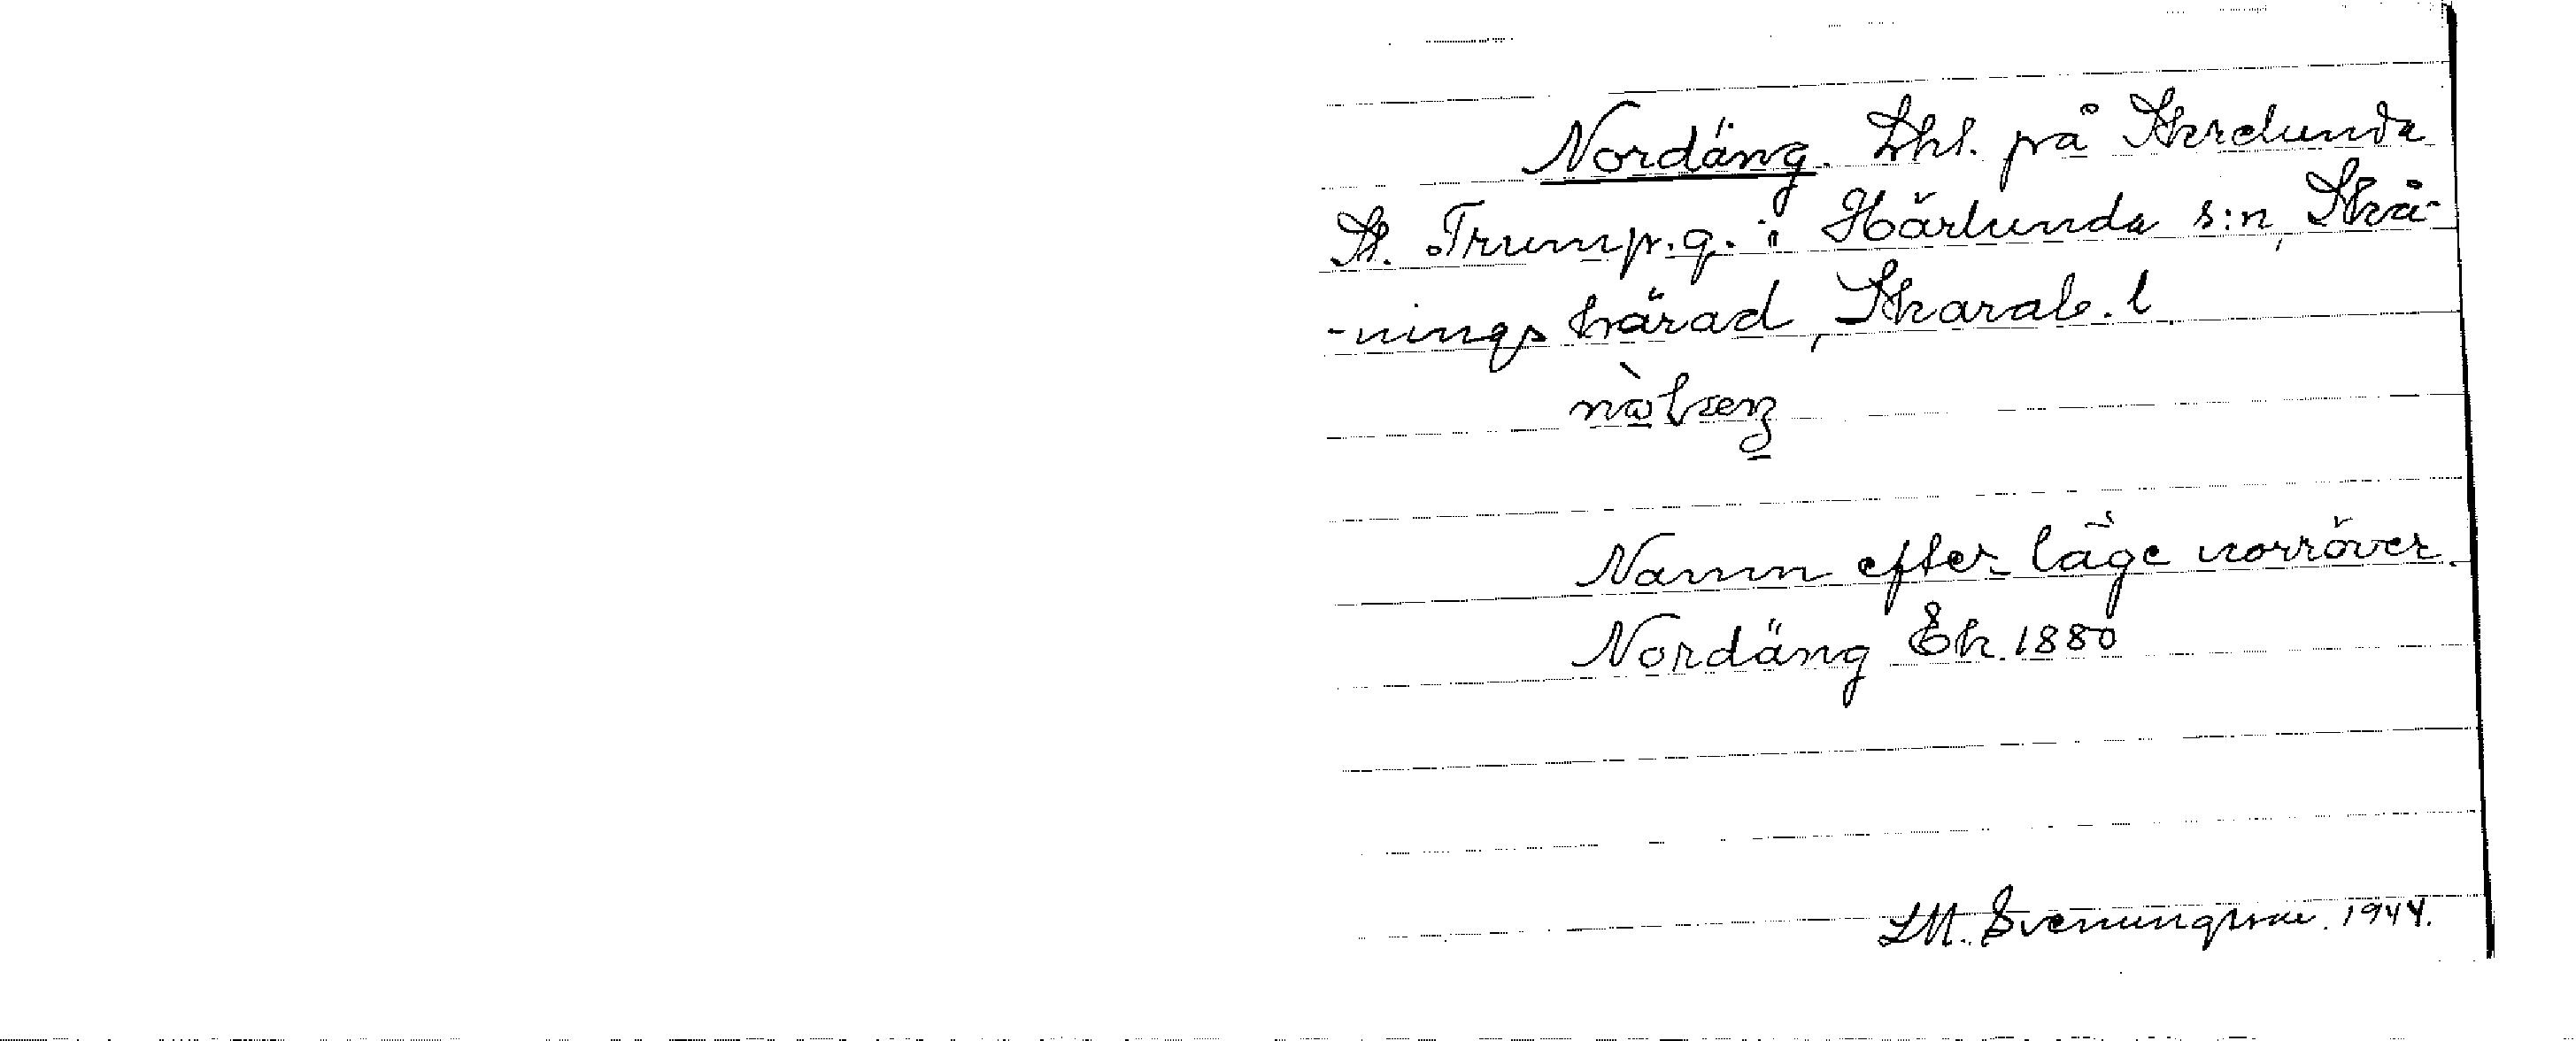 Nordäng. Lht. på Skrelunda
St. Trump.g. i Härlunda s:n, Skå-
-nings härad, Skarab. l.
Namn efter läge norröver.
Nordäng Ek. 1880
S.M. Svenungsson. 1944.